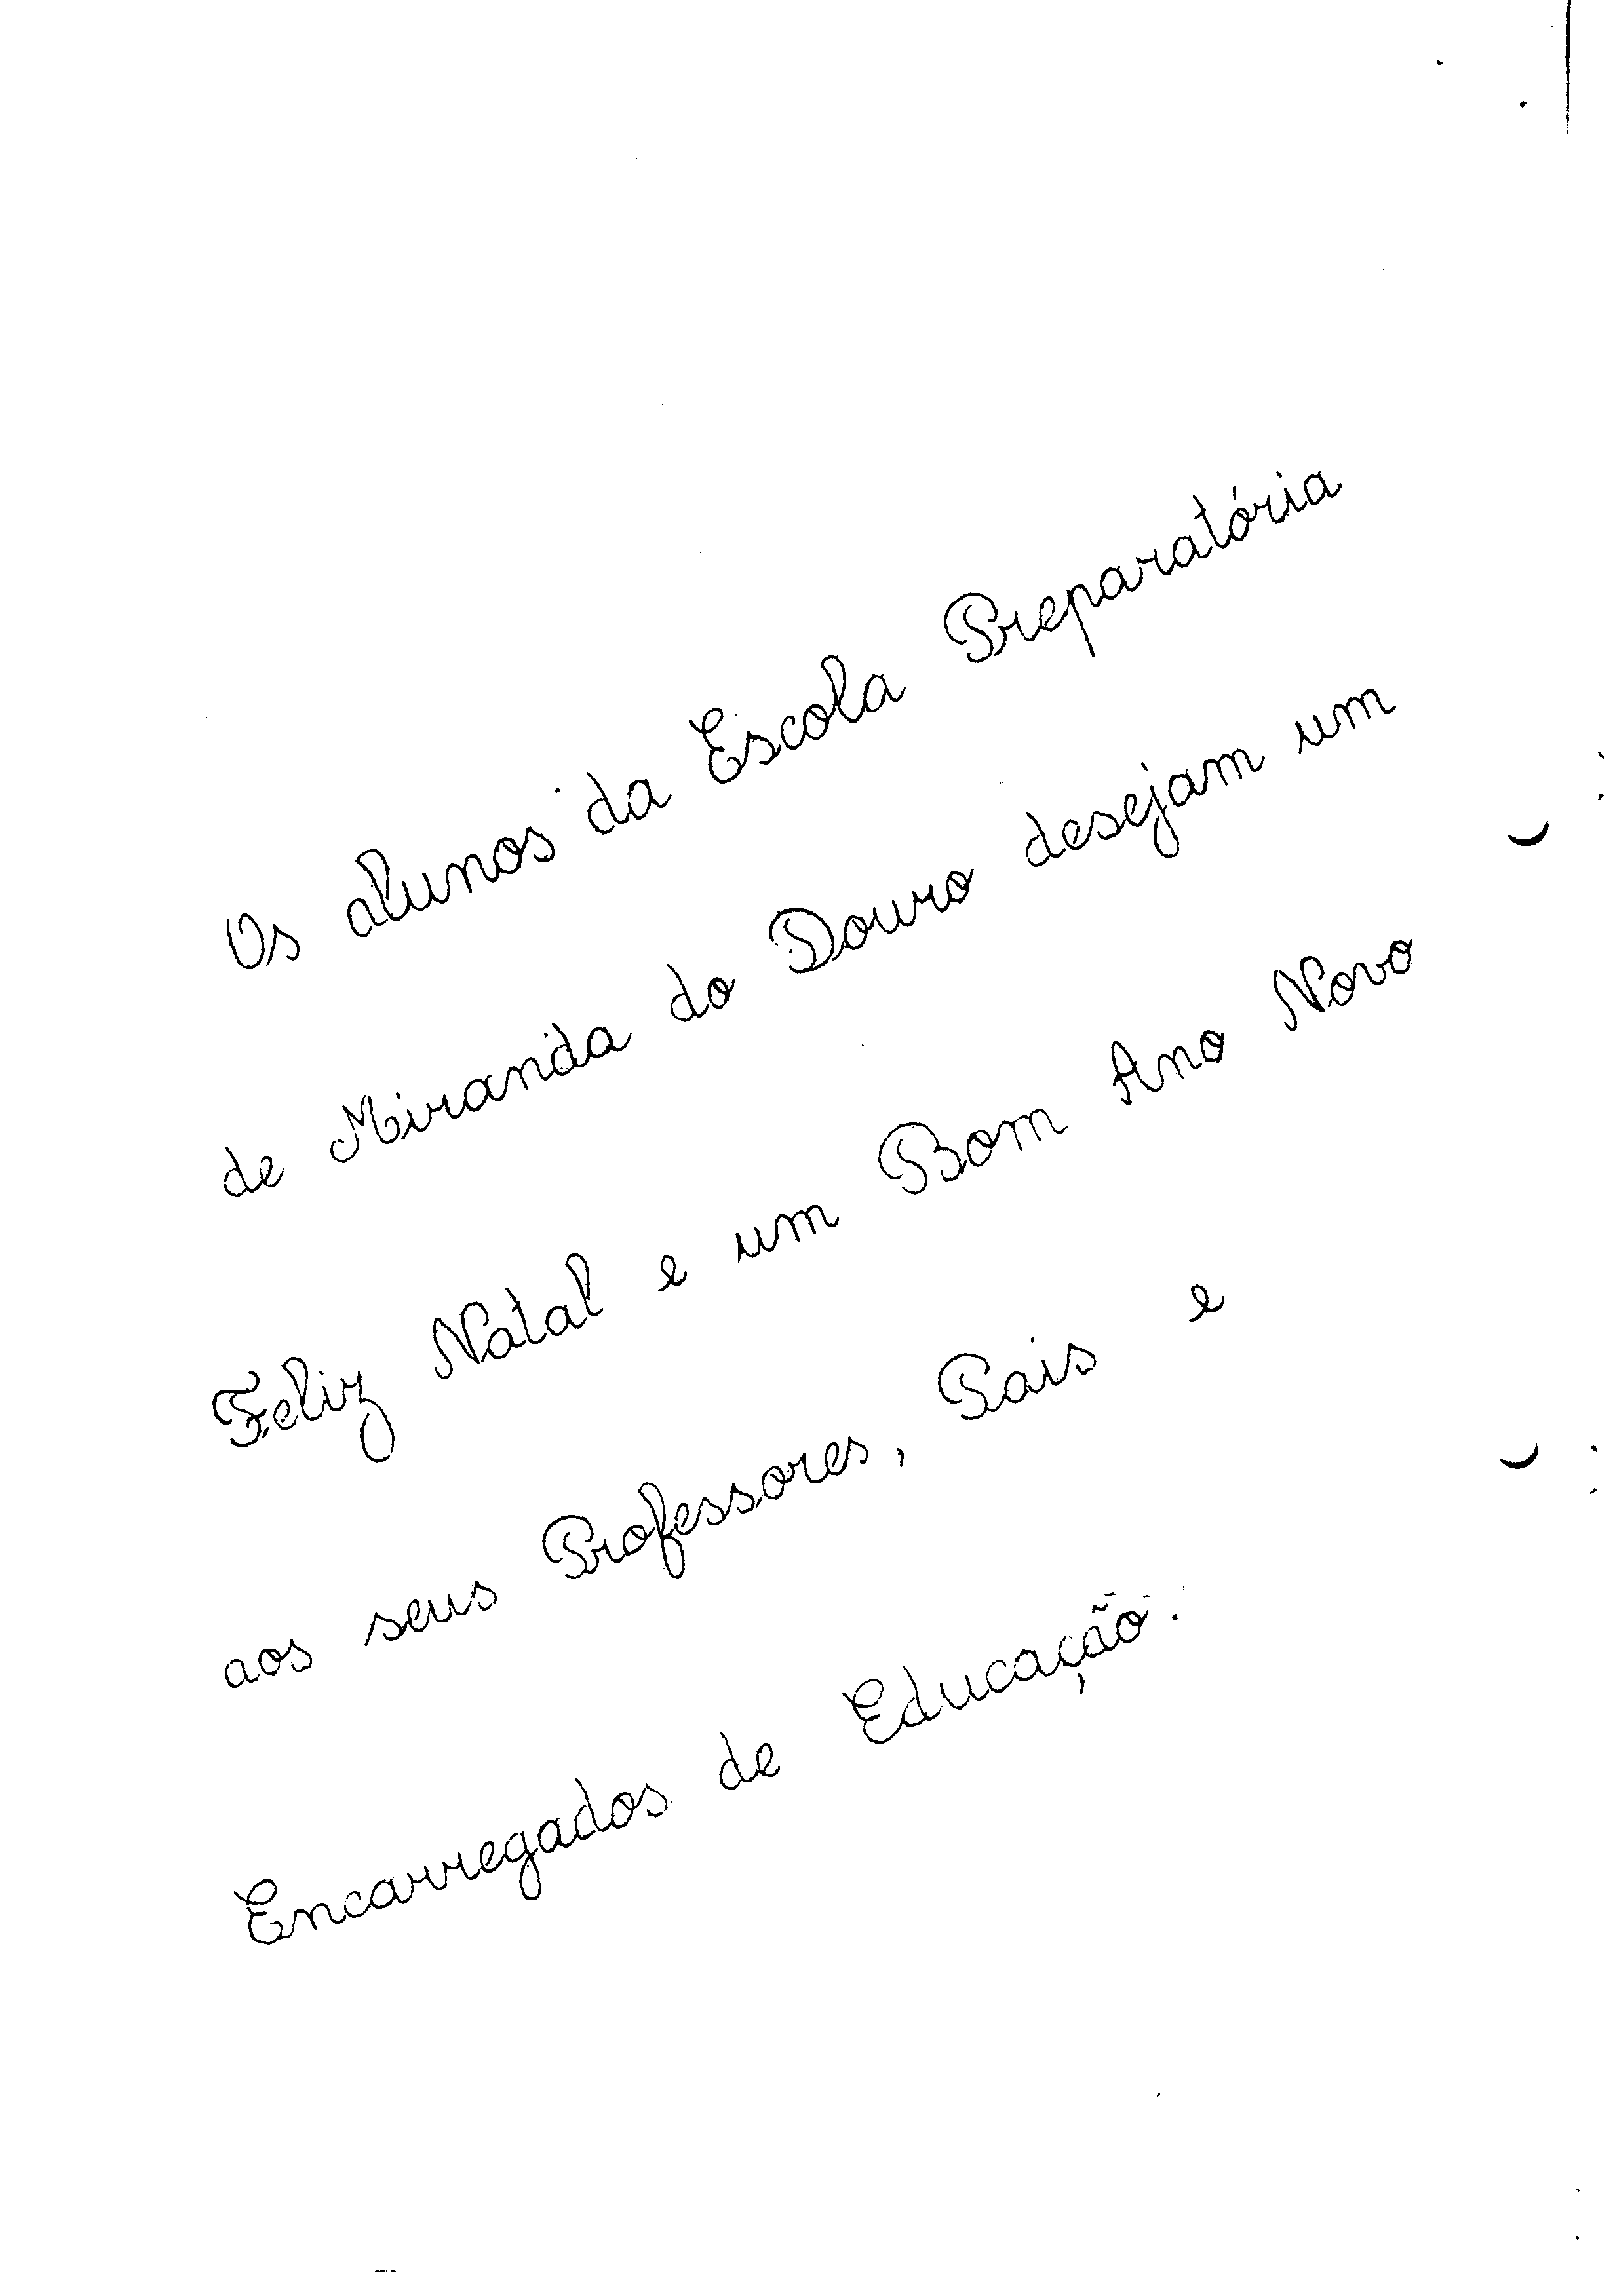 Os alunos da Escola Preparatória
de Miranda do Douro desejam um
Feliz Natal e um Bom Ano Novo
aos seus Professores, Pais e
Encarregados de Educação.